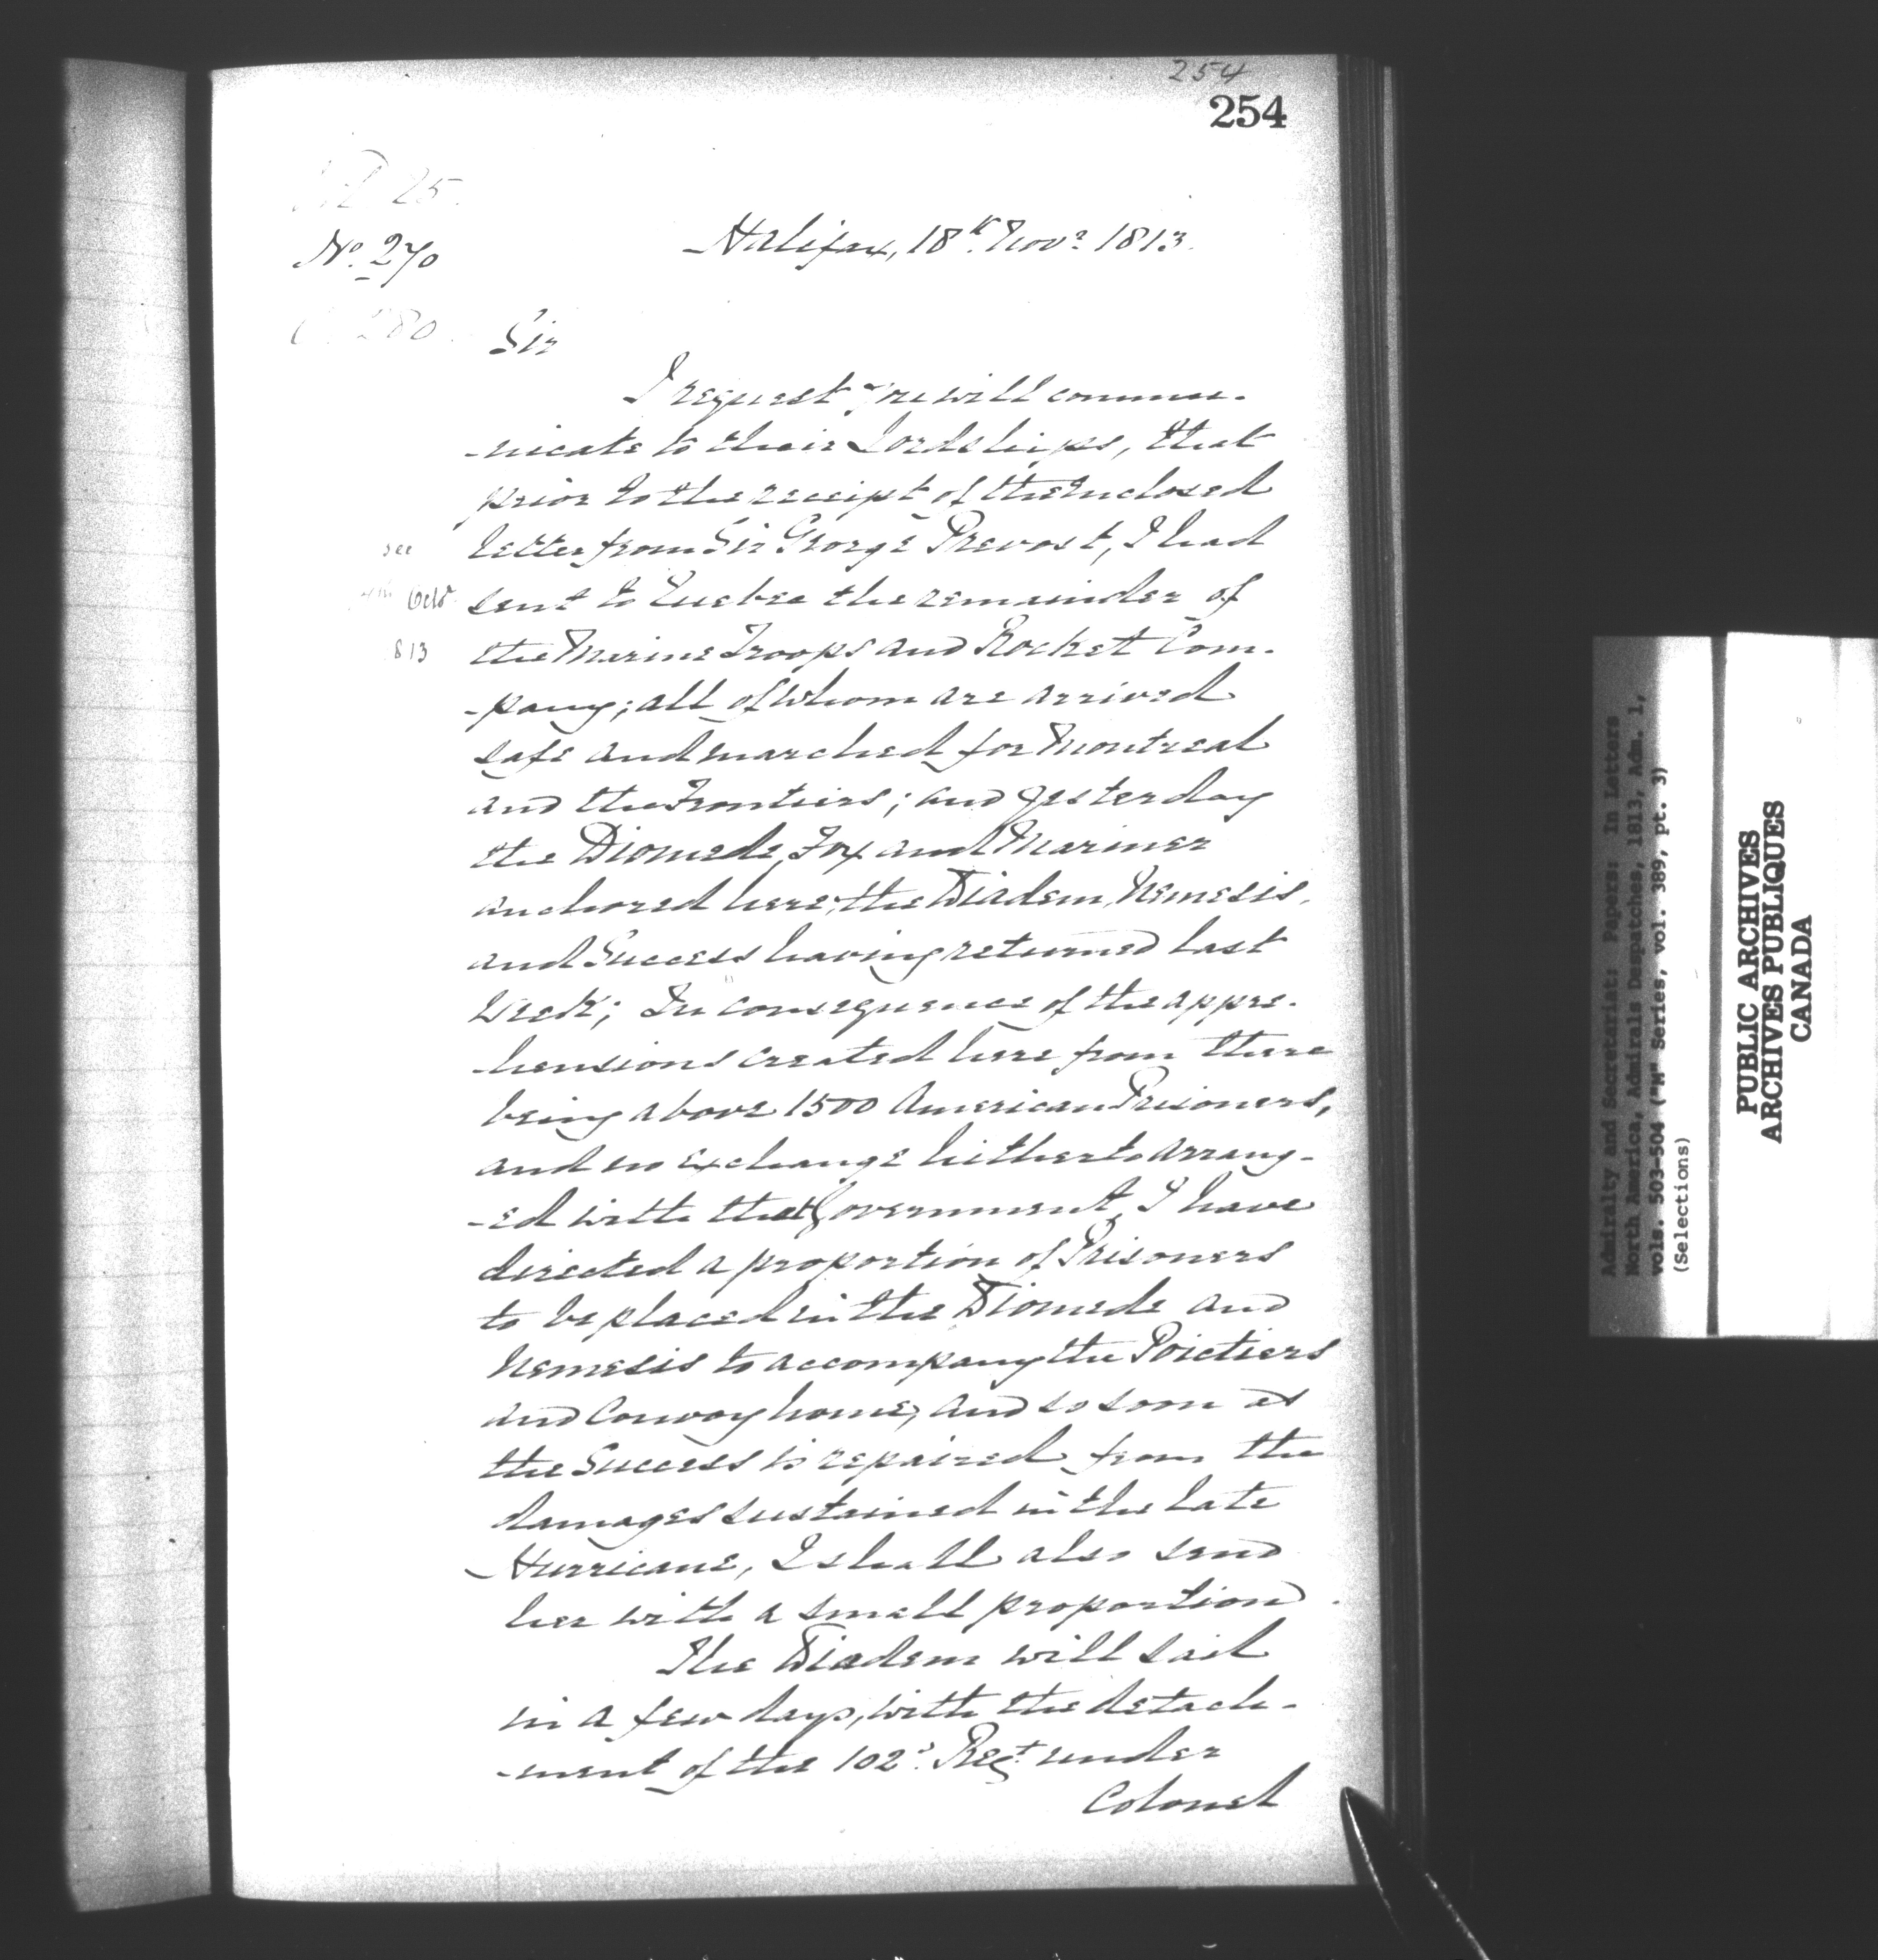 254
254
25.
No. 270
280.
Halifax, 18th Novr 1813.
Sir
I request you will commu-
-nicate to their Lordships, that
prior to the receipt of the Inclosed
letter from Sir George Prevost, I had
see
sent to Quebec the remainder of
Octr
the Marine Troops and Rocket Com-
813
-pany; all of whom are arrived
safe and marched for Montreal
and the Frontiers; and yesterday
the Diomede, Fox and Mariner
anchored here; the Diadem, Nemesis,
and Success having returned last
Week; In consequence of the appre-
-hensions created here from there
being above 1500 American Prisoners,
and no exchange hitherto arrang-
-ed with that Government, I have
directed a proportion of Prisoners
to be placed in the Diomede and
Nemesis to accompany the Poictiers
and Convoy home, and so soon as
the Success is repaired from the
damages sustained in the late
Hurricane, I shall also send
her with a small proportion.
The Diadem will sail
in a few days, with the detach-
-ment of the 102d. Regt. under
Colonel
Admiralty and Secretariat: Papers: In Letters
North America, Admirals Despatches, 1813, Adm. 1,
vols. 503-504 ("M" Series, vol. 389, pt. 3)
(Selections)
PUBLIC ARCHIVES
ARCHIVES PUBLIQUES
CANADA